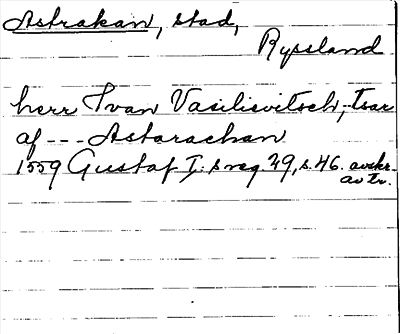 Astrakan, stad,
Ryssland
herr Ivan Vasilievitsch, tsar
af --- Astarachan
1559 Gustaf I:s reg. 29, s. 46. avskr.
av tr.